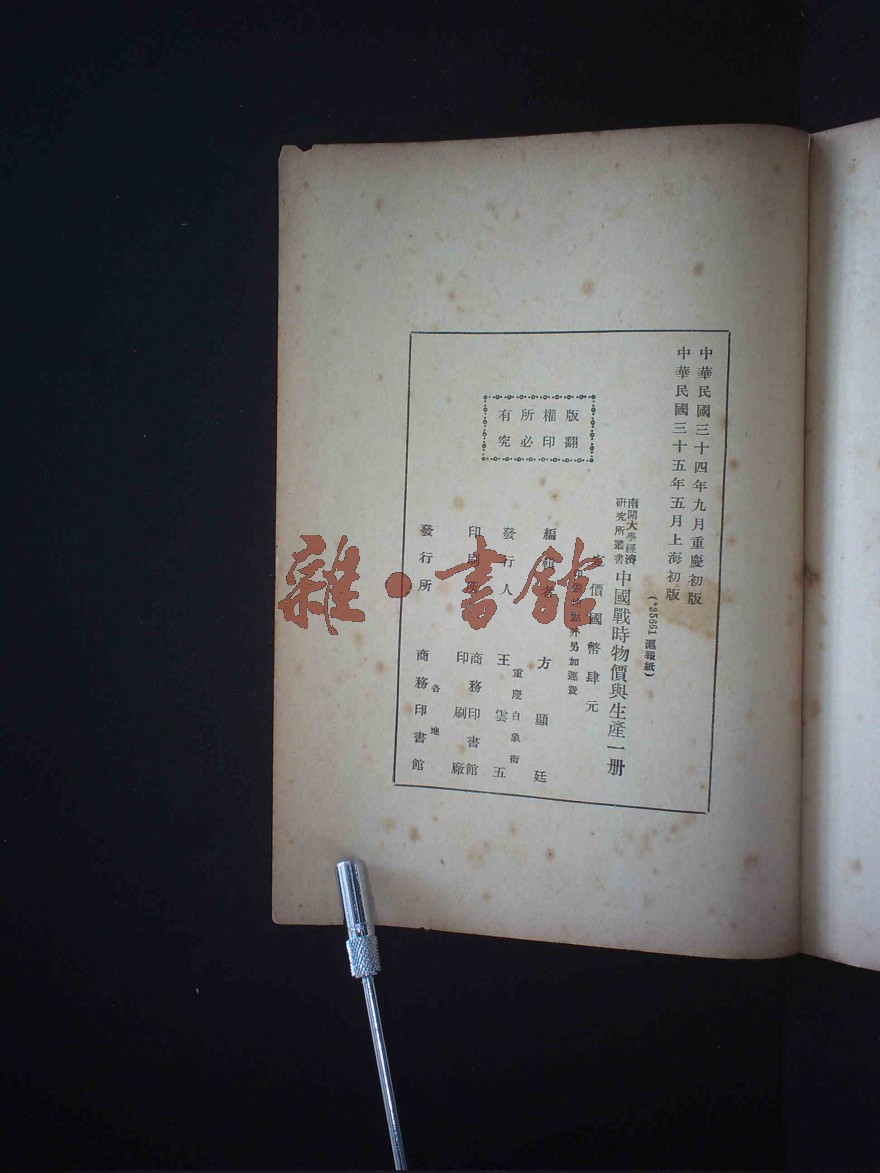 中華民國三十四年九月重慶初版
中華民國三十五年五月上海初版
(*35661 滬報紙)
南開大學經濟
研究所叢書
中國戰時物價與生產一册
價國幣肆元
外另加運費
編
方顯廷
發行人
王雲五
重慶白象街
印刷
商務印書館
印刷廠
發行所
商務印書館
各地
版權所有
翻印必究
雜·書館